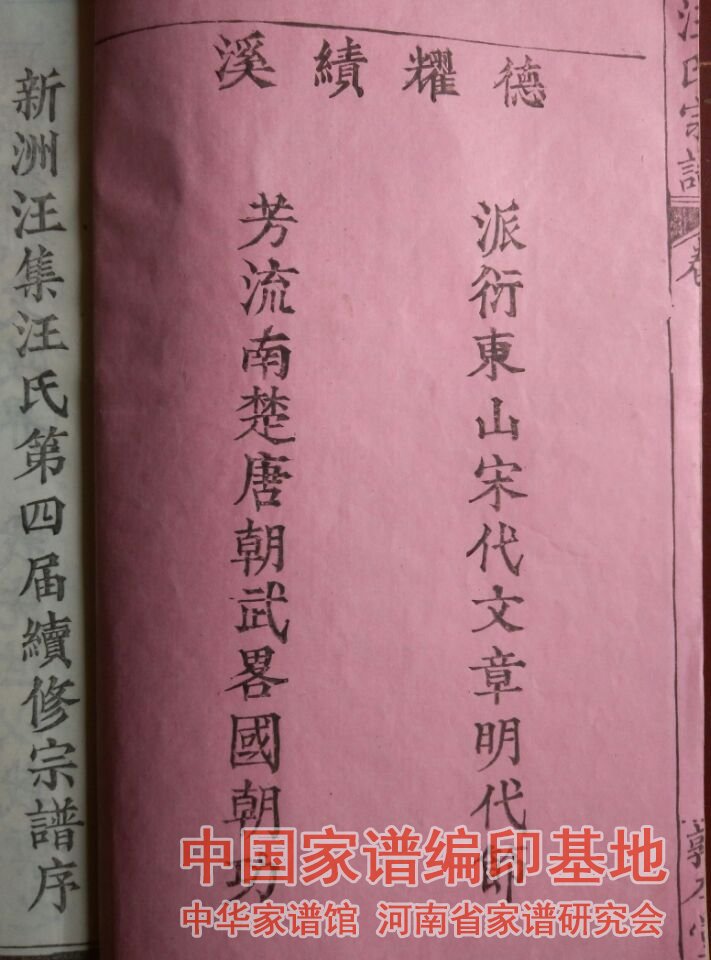 汪氏宗譜
卷
德耀績溪
派衍東山宋代文章明代師
芳流南楚唐朝武畧國朝功
新洲汪集汪氏第四届續修宗譜序
中国家谱编印基地
中华家谱馆 河南省家谱研究会